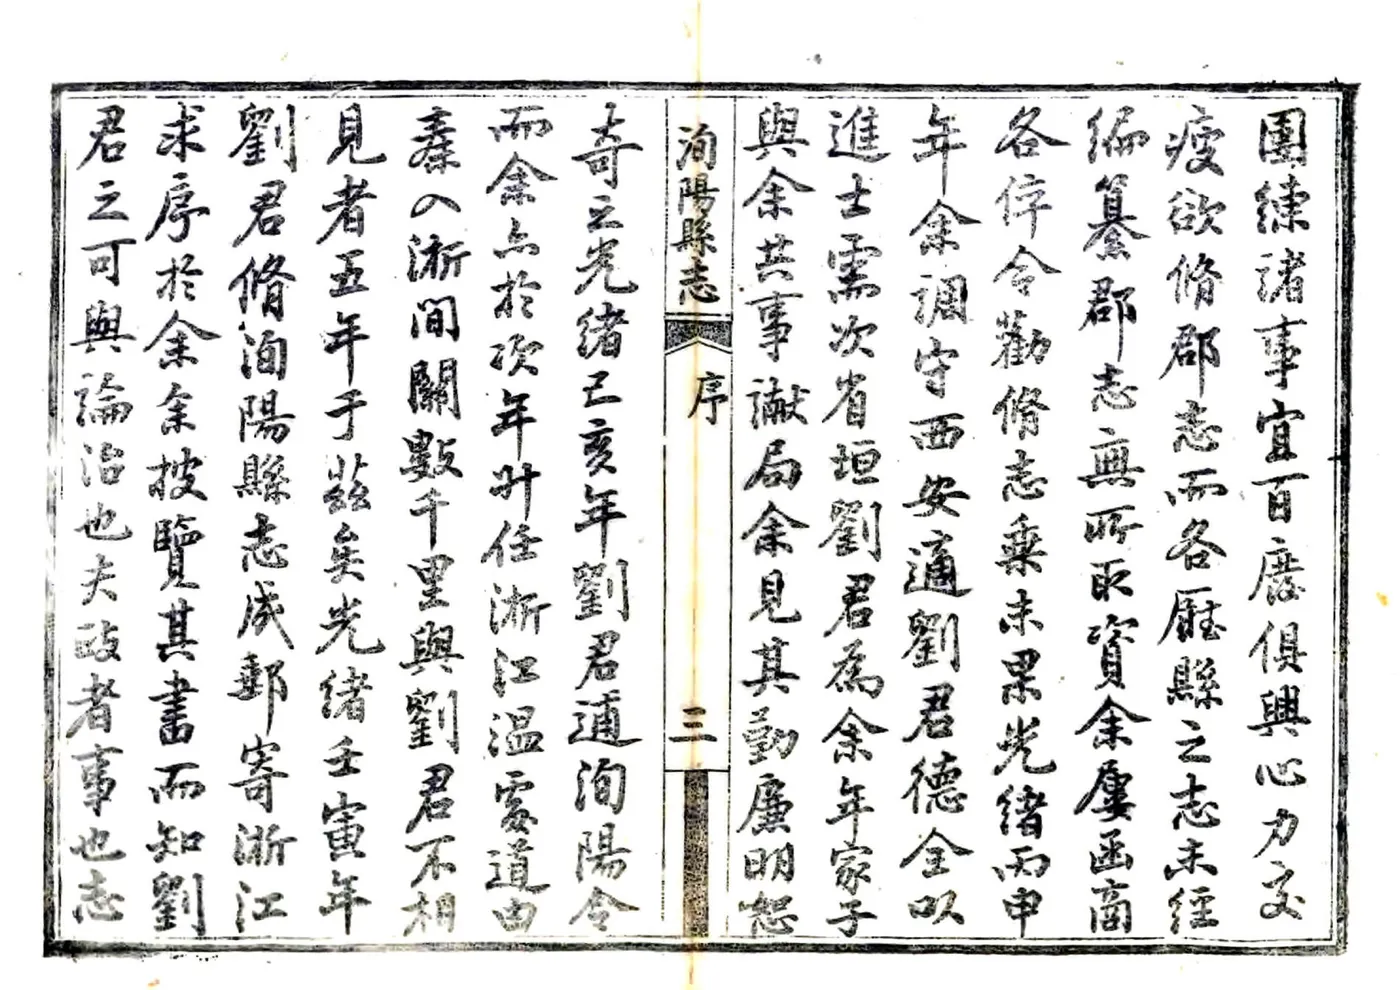 團練諸事宜百廢俱興心力交
瘦欲脩郡志而各厯縣之志未經
編纂郡志無所取資余屢函商
各倅令勸脩志乗未果光緒丙申
年余調守西安適劉君德全以
進士需次省垣劉君為余年家子
與余共事讞局余見其勤廉明恕
洵陽縣志
序
三
奇之光緒己亥年劉君補洵陽令
而余亦於次年升任浙江溫處道由
秦入浙間關數千里與劉君不相
見者五年于茲矣光緒壬寅年
劉君脩洵陽縣志成郵寄浙江
求序於余余披覽其書而知劉
君之可與論治也夫政者事也志